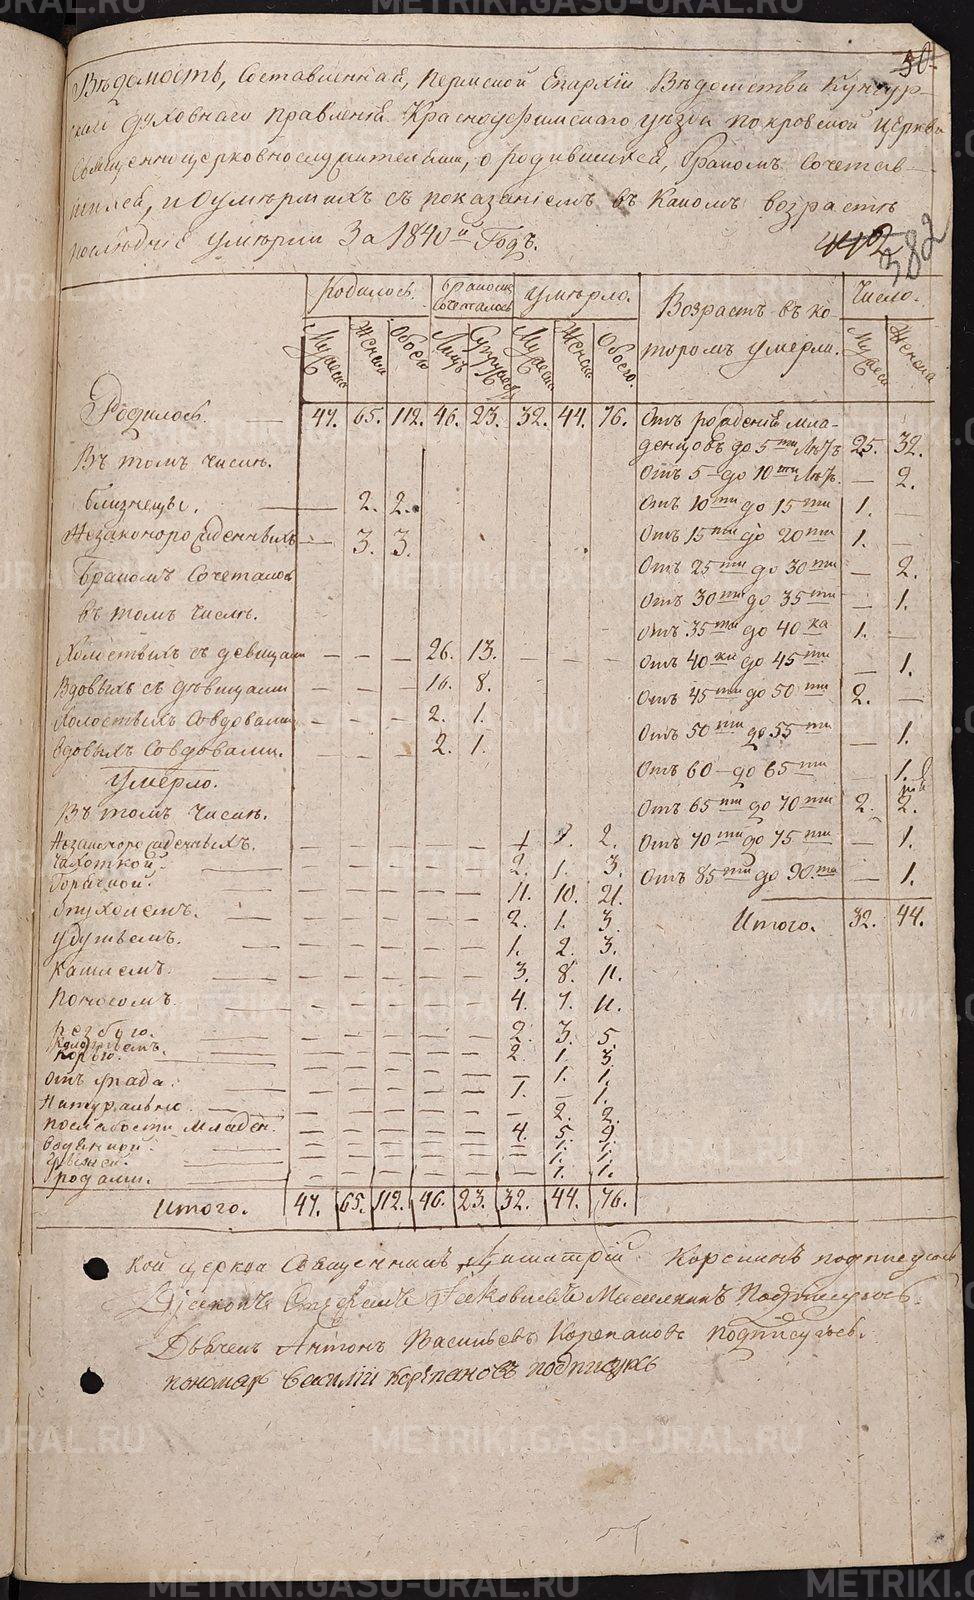 50.
Вѣдомость, Составленная, Пермской Епархіи Вѣдомства Кунгур-
скаго Духовнаго Правленія Красноуфимскаго уѣзда Покровской Церкви
Священноцерковнослужителями, о родившихся, бракомъ сочетав-
шихся, и умершихъ съ показаніемъ въ какомъ возрастѣ
послѣдніе умерли За 1840й Годъ.
382
Родилось. Бракомъ сочеталось Умерло. Возрастъ въ ко- Число.
Мужеск Женск Обоего Лицъ Супружес Мужеск Женск Обоего. торомъ умерли. Мужеск Женска
Родилось. — 47. 65. 112. 46. 23. 32. 44. 76. Отъ рожденія мла-
Въ томъ числѣ. денцовъ до 5ти лѣтъ 25. 32.
Отъ 5 до 10ти лѣтъ. — 2.
близнецы. — 2. 2. Отъ 10ти до 15ти 1. —
Незаконорожденныхъ — 3. 3. Отъ 15ти до 20ти 1. —
Бракомъ Сочеталось Отъ 25ти до 30ти — 2.
въ томъ числѣ. Отъ 30ти до 35ти — 1.
Отъ 35ти до 40ка 1. —
Холостыхъ съ девицами — — — 26. 13. — — — Отъ 40ка до 45ти — 1.
Вдовыхъ съ дѣвицами — — — 16. 8. Отъ 45ти до 50ти 2. —
Холостыхъ совдовами — — — 2. 1. Отъ 50ти до 55ти — 1.
Вдовыхъ совдовами. — — — 2. 1. Отъ 60 до 65ти — 1.
Умерло. Отъ 65ти до 70ти 2. 2.
Въ томъ числѣ.
Незаконорожденныхъ. — — — — — 2. Отъ 70ти до 75ти — 1.
Чахоткой. — — — — — 2. 1. 3. Отъ 85ти до 90та — 1.
Горячкой. — — — — — 11. 10. 21.
Опухолемъ. — — — — — 2. 1. 3. Итого. 32. 44.
Удушьемъ. — — — — — 1. 2. 3.
Кашлемъ. — — — — — 3. 8. 11.
Поносомъ. — — — — — 4. 7. 11.
— — — — — 2. 3. 5.
— — — — — 2. 1. 3.
Отъ — — — — — — 1. 1.
Натурально — — — — — 1. — 1.
— 2. 2.
Послабости Младен. — — — — — 4. 5. 9.
Водянкой. — — — — — — 1. 1.
— — — — — — 1. 1.
Родами. — — — — — — 1. 1.
Итого. 47. 65. 112. 46. 23. 32. 44. 76.
кой церкви Священникъ Димитрій подписуюсь
Діаконъ Іаковлевъ подписуюсь.
Дьячекъ Антонъ Васильевъ Корепановъ подписуюсь.
пономарь Василій Корепановъ подписуюсь
METRIKI.GASO-URAL.RU